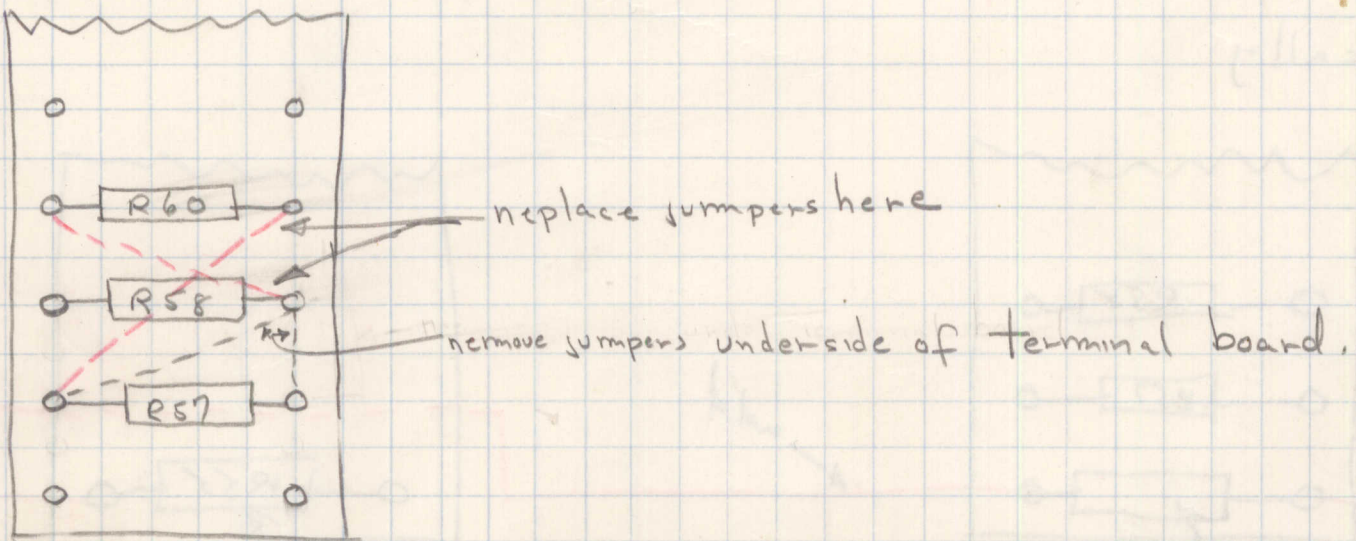 R60
replace jumpers here
R58
remove jumpers underside of terminal board.
R57